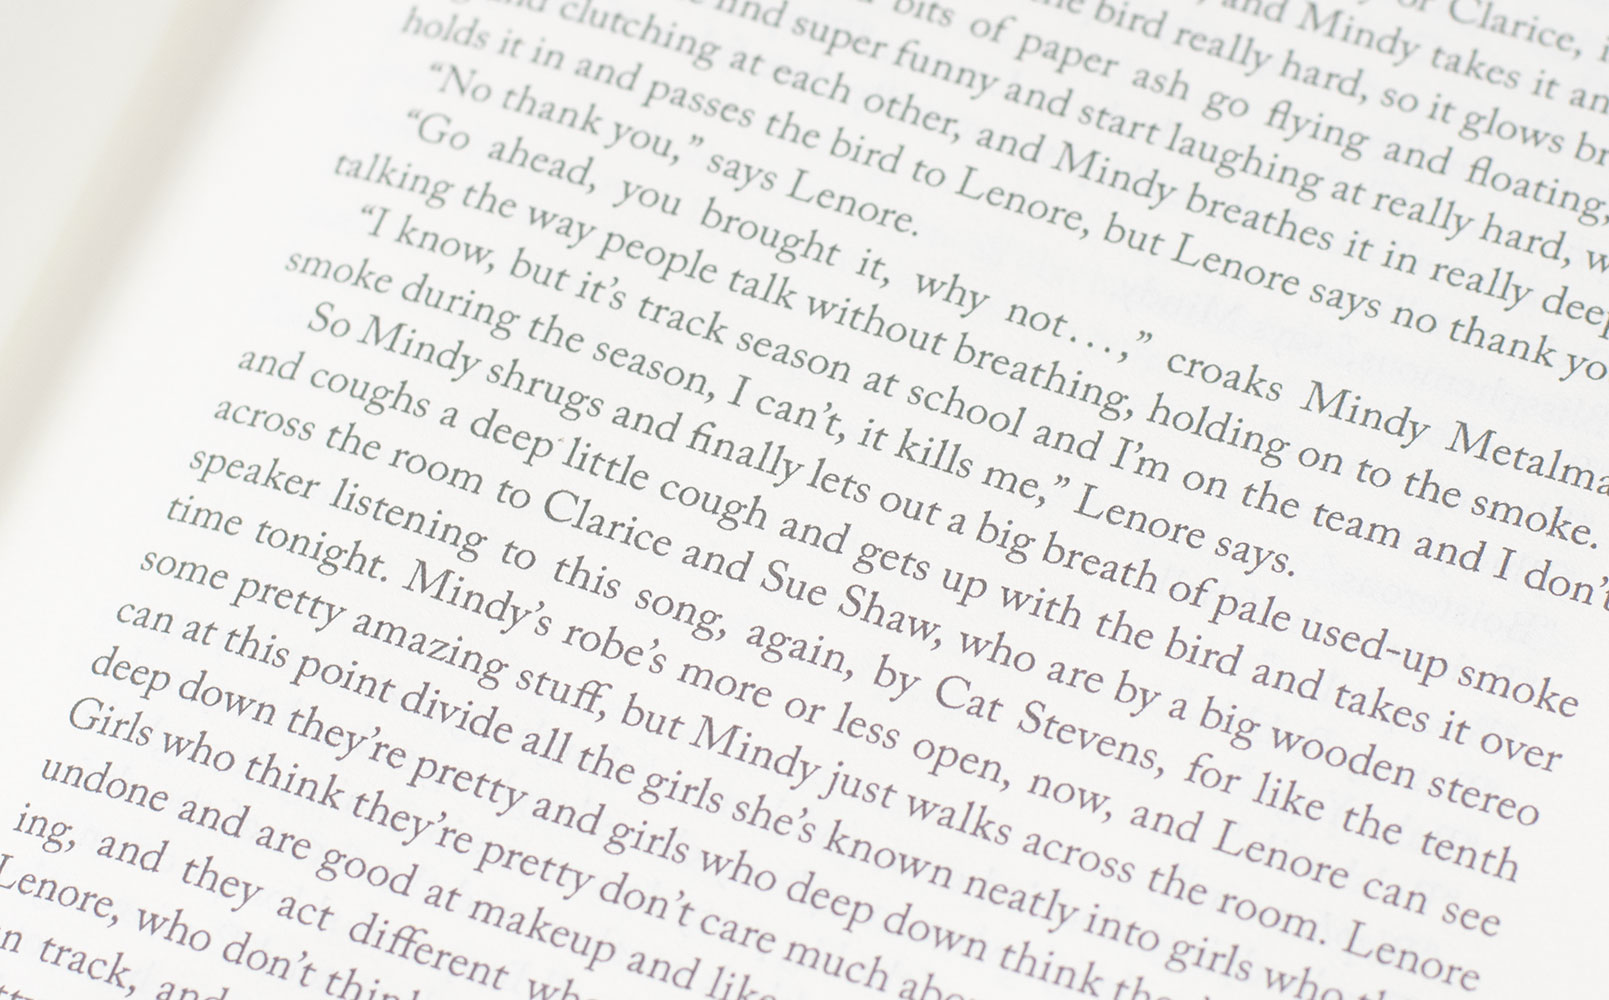 of Clarice,
and Mindy takes it
the bird really hard, so it glows
bits of paper ash go flying and floating,
find super funny and start laughing at really hard,
and clutching at each other, and Mindy breathes it in really deep
holds it in and passes the bird to Lenore, but Lenore says no thank yo
“No thank you,” says Lenore.
“Go ahead, you brought it, why not…,” croaks Mindy Metalma
talking the way people talk without breathing, holding on to the smoke.
“I know, but it’s track season at school and I’m on the team and I don’t
smoke during the season, I can’t, it kills me,” Lenore says.
So Mindy shrugs and finally lets out a big breath of pale used-up smoke
and coughs a deep little cough and gets up with the bird and takes it over
across the room to Clarice and Sue Shaw, who are by a big wooden stereo
speaker listening to this song, again, by Cat Stevens, for like the tenth
time tonight. Mindy’s robe’s more or less open, now, and Lenore can see
some pretty amazing stuff, but Mindy just walks across the room. Lenore
can at this point divide all the girls she’s known neatly into girls who
deep down they’re pretty and girls who deep down think
Girls who think they’re pretty don’t care much abo
undone and are good at makeup and like
ing, and they act different
Lenore, who don’t thin
n track, and